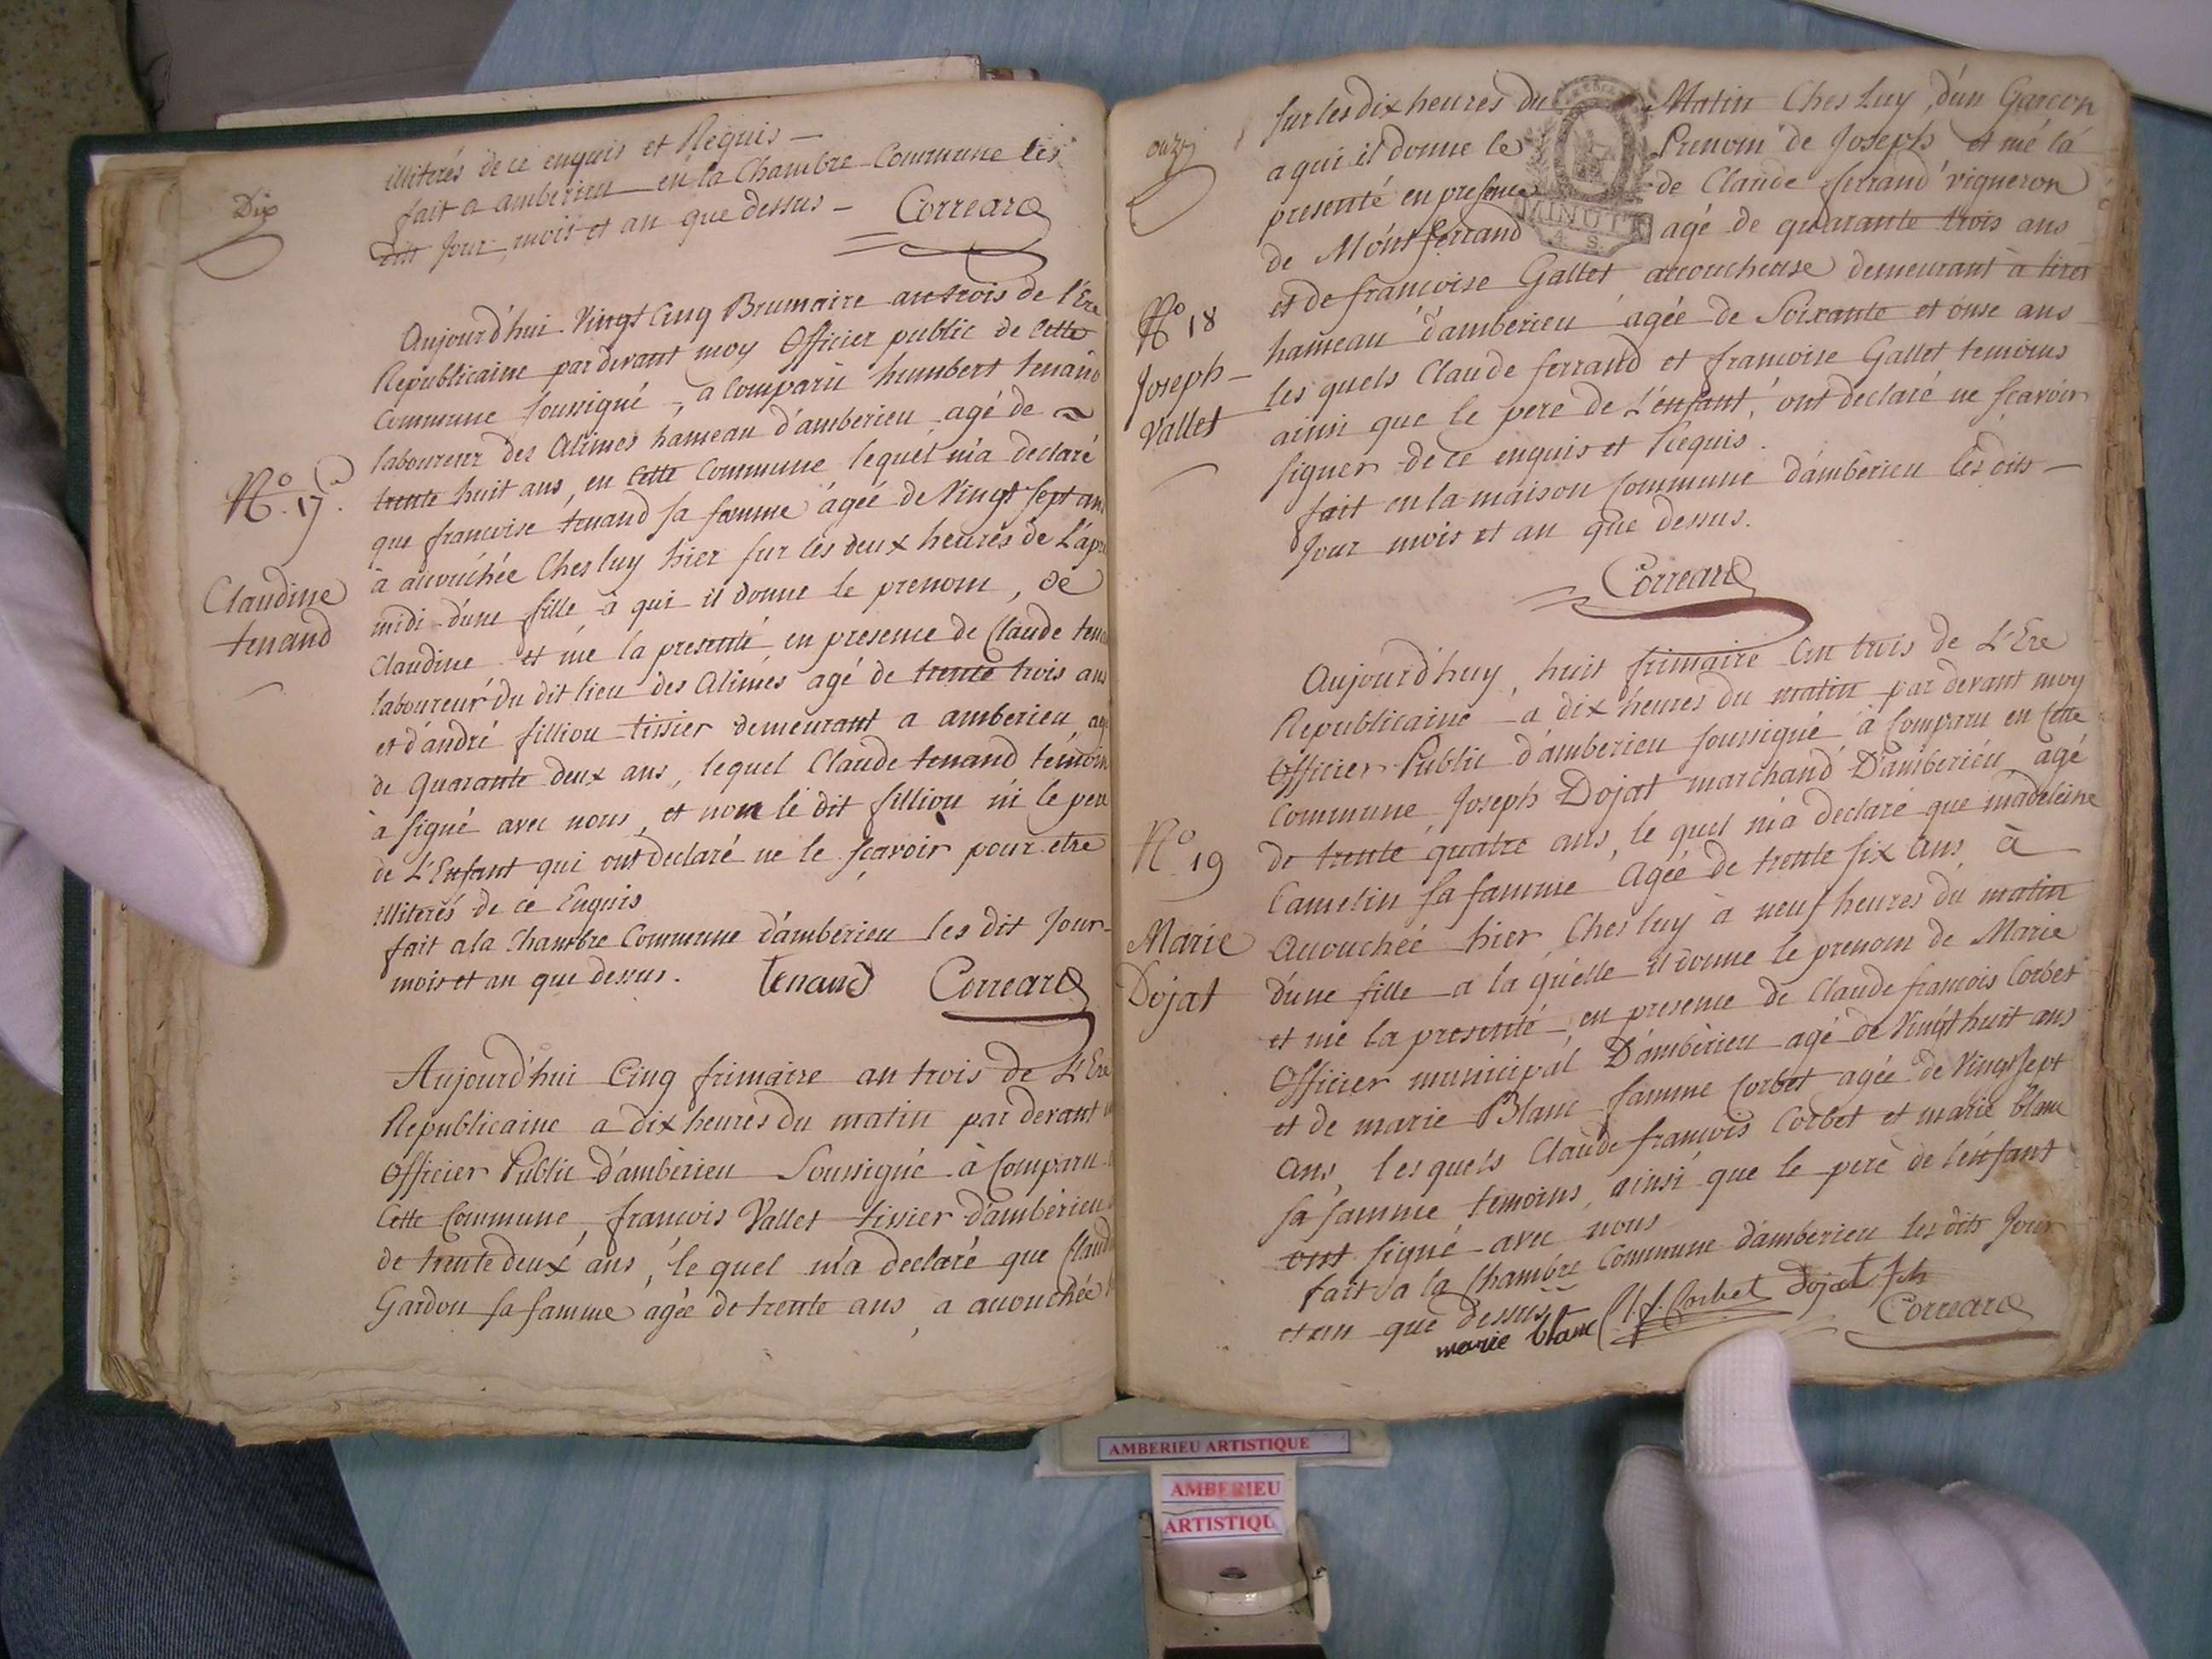 Dix
illiterés de ce enquis et Requis —
fait a amberieu en la Chambre Commune les
dit Jour, mois et an que dessus — Correard
Aujourd'hui Vingt Cinq Brumaire an trois de l'Ere
Republicaine par devant moy Officier public de Cette
Commune soussigné, a Comparu humbert tenand
laboureur des Alimes hameau d'amberieu agé de
trente huit ans, en Cette Commune lequel m'a declaré
que francoise tenand sa femme agée de Vingt sept ans
à accouchée Ches luy hier sur les deux heures de L'apr
midi d'une fille à qui il donne le prenom, de
Claudine et me la presenté en presence de Claude tenand
laboureur du dit lieu des Alimes agé de trente trois ans
et d'andré fillion tissier demeurant a amberieu agé
de Quarante deux ans, lequel Claude tenand temoin
à signé avec nous, et non le dit fillion ni le pere
de L'Enfant qui ont declaré ne le sçavoir pour etre
illiterés de ce Enquis
fait a la Chambre Commune d'amberieu les dit Jour
mois et an que dessus. tenand Correard
N.o 17.
Claudine
tenand
Aujourd'hui Cinq frimaire an trois de L'Ere
Republicaine a dix heures du matin par devant
Officier Public d'amberieu Soussigné à Comparu
Cette Commune, francois Vallet tissier d'amberieu
de trente deux ans, le quel m'a declaré que Claud
Gardon sa famme agée de trente ans, a accouchée
onze
sur les dix heures du Matin Ches Luy, d'un Garcon
a qui il donne le Prenom de Joseph et mé la
presenté en presence de Claude ferrand vigneron
de Montferrand agé de quarante trois ans
et de francoise Gallet accoucheuse demeurant à tiret
hameau d'amberieu agée de Soixante et onse ans
les quels Claude ferrand et francoise Gallet temoins
ainsi que le pere de L'enfant, ont declaré ne scavoir
signer de ce enquis et Requis.
fait en la maison Commune d'amberieu les dits
Jour mois et an que dessus.
Correard
No 18
Joseph
Vallet
Aujourd'huy, huit frimaire an trois de L'Ere
Republicaine a dix heures du matin par devant moy
Officier Public d'amberieu soussigné à Comparu en Cette
Commune Joseph Dojat marchand D'amberieu agé
de trente quatre ans, le quel m'a declaré que madeleine
Camelin sa famme Agée de trente six ans à
Accouchée hier Ches luy à neuf heures du matin
d'une fille a la quelle il donne le prenom de Marie
et me la presenté, en presence de Claude francois Corbet
Officier municipal D'amberieu agé de Vingt huit ans
et de marie Blanc famme Corbet agée de Vingt sept
ans, les quels Claude francois Corbet et marie blanc
sa famme temoins, ainsi que le pere de l'enfant
ont signé avec nous
fait a la Chambre Commune d'amberieu les dits Jour
et an que dessus
marie blanc Cl. f. Corbet Dojat Correard
No 19
Marie
Dojat
MINUTE
AMBERIEU ARTISTIQUE
AMBERIEU
ARTISTIQU